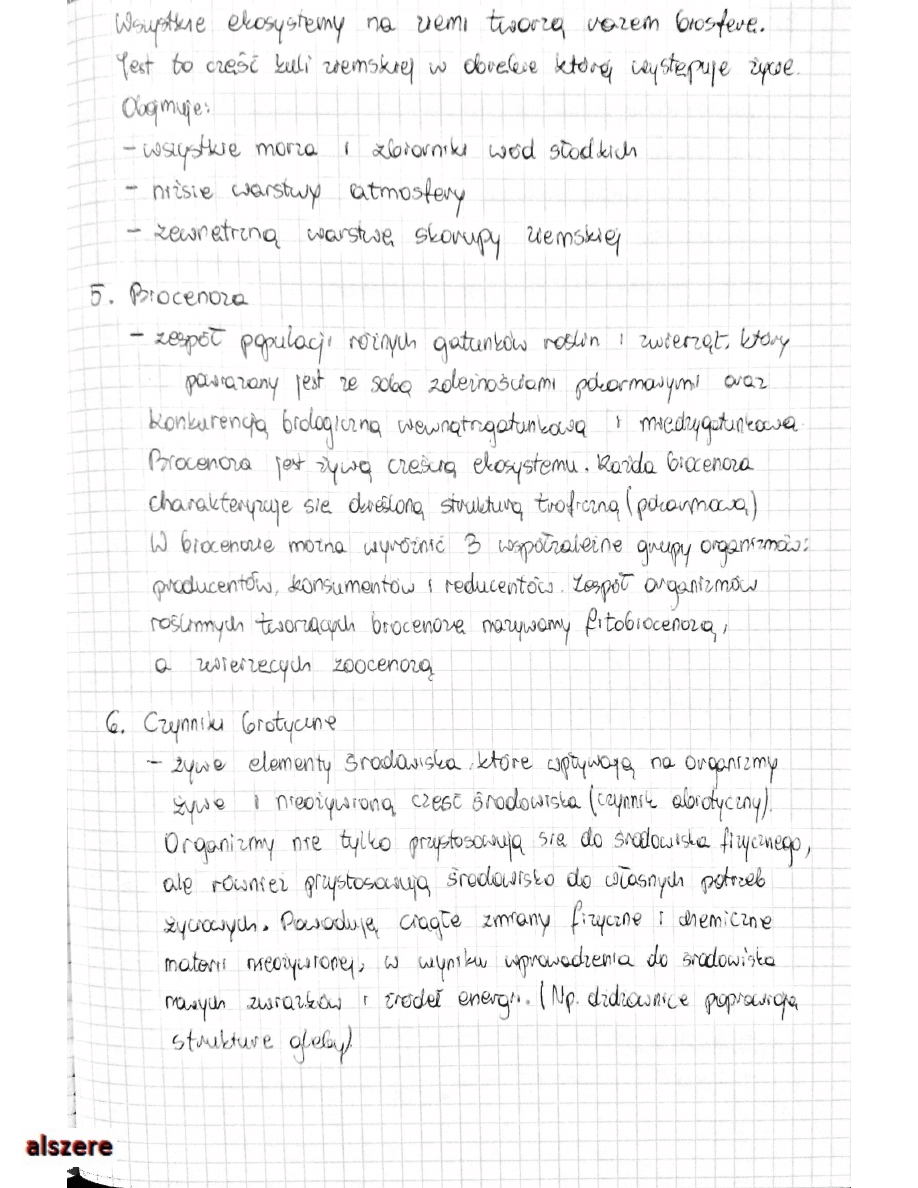 Wszystkie ekosystemy na ziemi tworzą razem biosferę.
Jest to część kuli ziemskiej w obrębie której występuje życie.
Obejmuje:
- wszystkie morza i zbiorniki wód słodkich
- niższe warstwy atmosfery
- zewnętrzną warstwę skorupy ziemskiej
5. Biocenoza
- zespół populacji różnych gatunków roślin i zwierząt, który
powiązany jest ze sobą zależnościami pokarmowymi oraz
konkurencją biologiczną wewnątrzgatunkową i międzygatunkową
Biocenoza jest żywą częścią ekosystemu. Każda biocenoza
charakteryzuje się określoną strukturą troficzną (pokarmową)
W biocenozie można wyróżnić 3 współzależne grupy organizmów:
producentów, konsumentów i reducentów. Zespół organizmów
roślinnych tworzących biocenozę nazywamy fitobiocenozą,
a zwierzęcych zoocenozą
6. Czynniki biotyczne
- żywe elementy środowiska, które wpływają na organizmy
żywe i nieożywioną część środowiska (czynnik abiotyczny).
Organizmy nie tylko przystosowują się do środowiska fizycznego,
ale również przystosowują środowisko do własnych potrzeb
życiowych. Powodują ciągłe zmiany fizyczne i chemiczne
materii nieożywionej, w wyniku wprowadzenia do środowiska
nowych związków i źródeł energii. (Np. dżdżownice poprawiają
strukturę gleby)
alszere